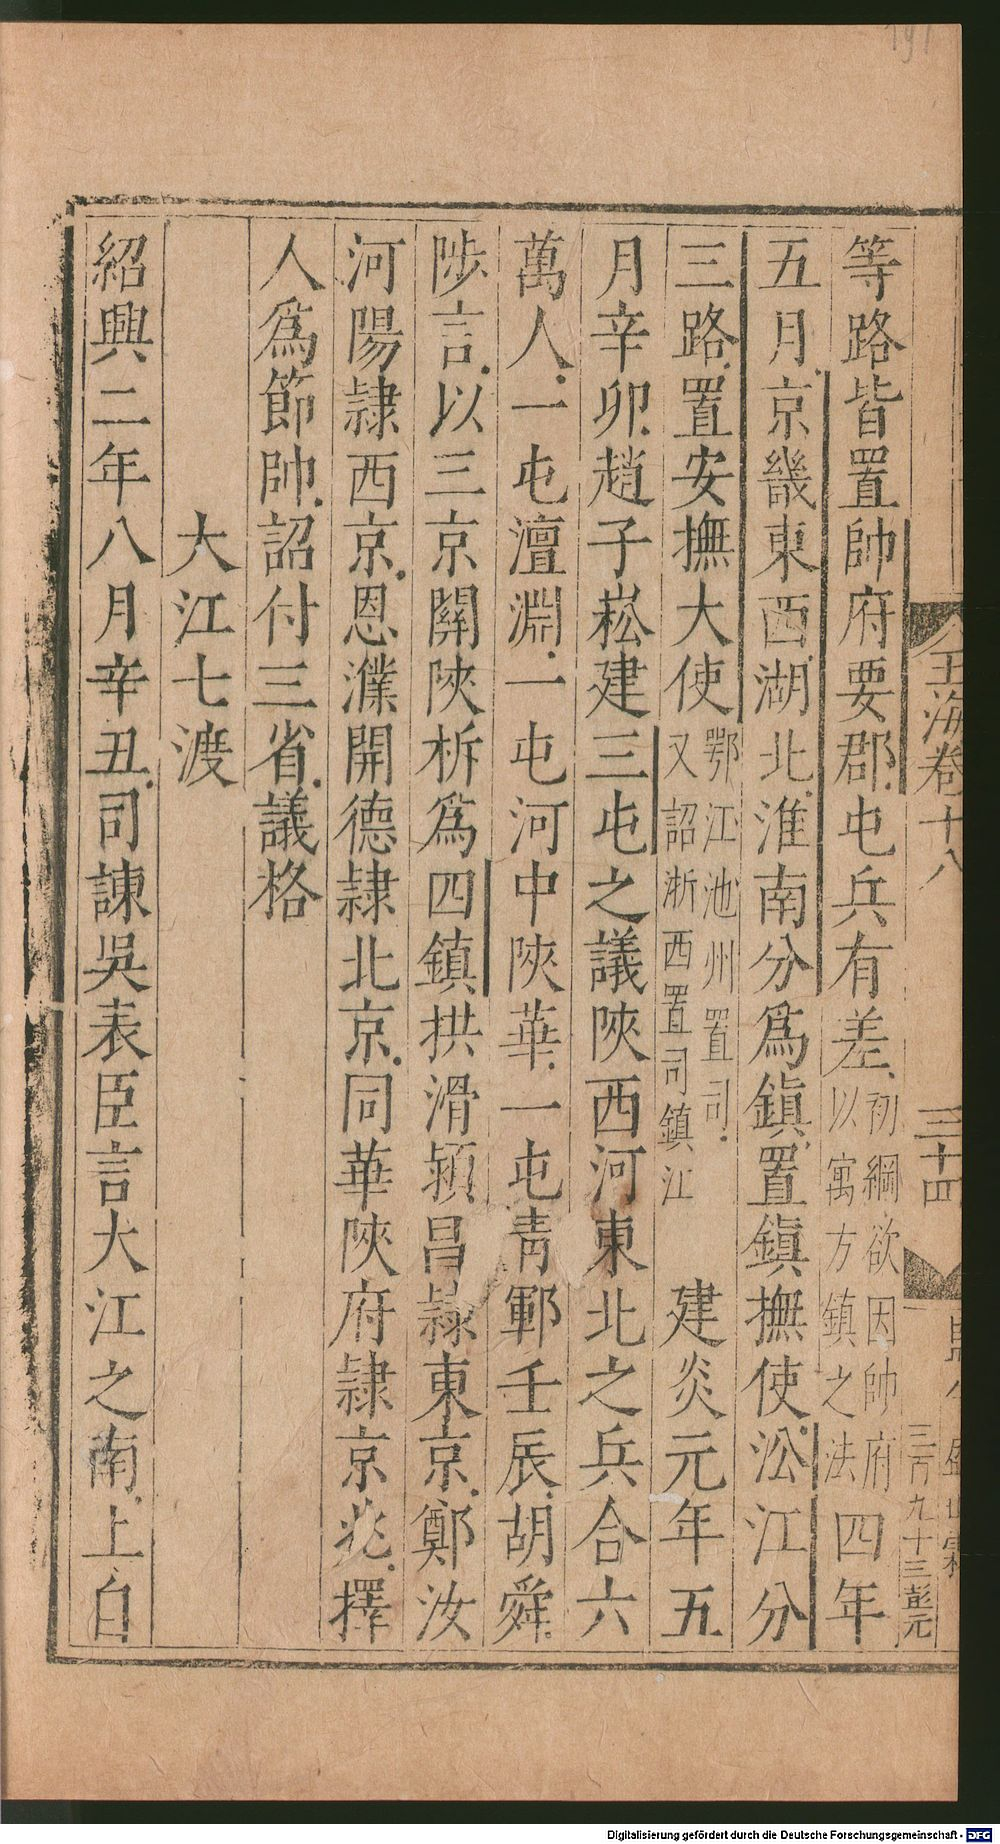 等路皆置帥府要郡屯兵有差初綱欲因帥府以寓方鎮之法四年
五月京畿東西湖北淮南分爲鎮置鎮撫使㳂江分
三路置安撫大使鄂江池州置司又詔浙西置司鎮江建炎元年五
月辛卯趙子崧建三屯之議陜西河東北之兵合六
萬人一屯澶淵一屯河中陜華一屯青鄆壬辰胡舜
陟言以三京關陜析爲四鎮拱滑潁昌隸東京鄭汝
河陽隸西京恩濮開德隸北京同華陜府隸京兆擇
人爲節帥詔付三省議格
大江七渡
紹興二年八月辛丑司諫吳表臣言大江之南上自
玉海卷十八
三十四
九十三彭元
Digitalisierung gefördert durch die Deutsche Forschungsgemeinschaft - DFG